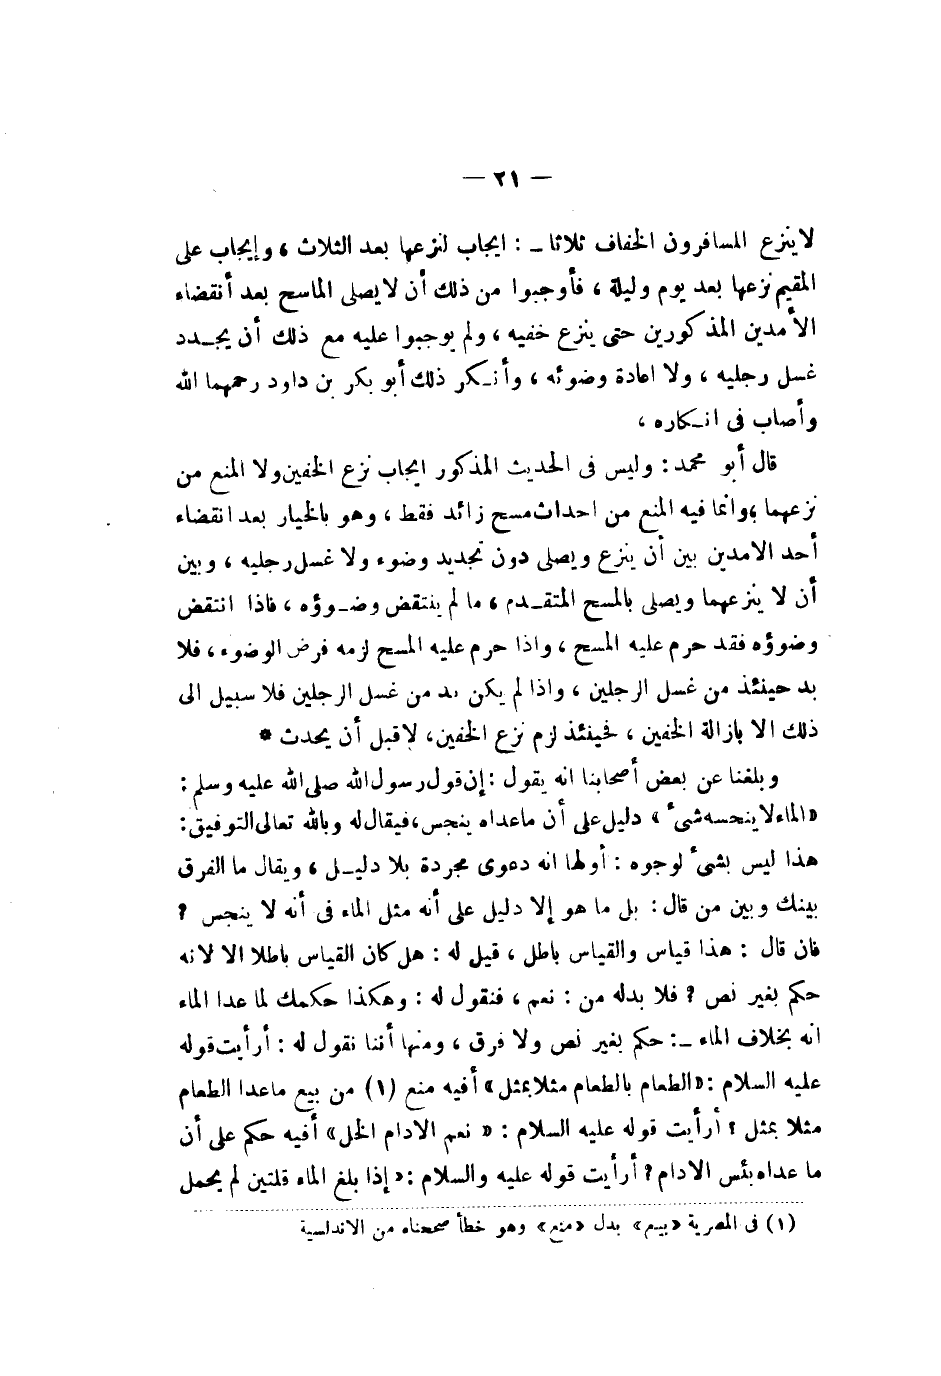 — ٢١ —
لا ينزع المسافرون الخفاف ثلاثا ــ : ايجاب لنزعها بعد الثلاث ، وإيجاب على
المقيم نزعها بعد يوم وليلة ، فأوجبوا من ذلك أن لا يصلى الماسح بعد أنقضاء
الأمدين المذكورين حتى ينزع خفيه ، ولم يوجبوا عليه مع ذلك أن يجـدد
غسل رجليه ، ولا اعادة وضوئه ، وأنـكر ذلك أبو بكر بن داود رحمهما الله
وأصاب فى انـكاره ،
قال أبو محمد : وليس فى الحديث المذكور ايجاب نزع الخفين ولا المنع من
نزعهما ، وانما فيه المنع من احداث مسح زائد فقط ، وهو بالخيار بعد انقضاء
أحد الامدين بين أن ينزع ويصلى دون تجديد وضوء ولا غسل رجليه ، وبين
أن لا ينزعهما ويصلى بالمسح المتقـدم ، ما لم ينتقض وضـوؤه ، فاذا انتقض
وضوؤه فقد حرم عليه المسح ، واذا حرم عليه المسح لزمه فرض الوضوء ، فلا
بد حينئذ من غسل الرجلين ، واذا لم يكن بد من غسل الرجلين فلا سبيل الى
ذلك الا بازالة الخفين ، فحينئذ لزم نزع الخفين، لا قبل أن يحدث *
وبلغنا عن بعض أصحابنا انه يقول : إن قول رسول الله صلى الله عليه وسلم :
«الماء لا ينجسه شىء» دليل على أن ما عداه ينجس، فيقال له وبالله تعالى التوفيق:
هذا ليس بشىء لوجوه : أولها انه دعوى مجردة بلا دليـل ، ويقال ما الفرق
بينك وبين من قال : بل ما هو إلا دليل على أنه مثل الماء فى أنه لا ينجس ؟
فان قال : هذا قياس والقياس باطل ، قيل له : هل كان القياس باطلا الا لانه
حكم بغير نص ؟ فلا بد له من : نعم ، فنقول له : وهكذا حكمك لما عدا الماء
انه بخلاف الماء ــ : حكم بغير نص ولا فرق ، ومنها أننا نقول له : أرأيت قوله
عليه السلام : «الطعام بالطعام مثلا بمثل» أفيه منع (١) من بيع ما عدا الطعام
مثلا بمثل ؟ أرأيت قوله عليه السلام : « نعم الادام الخل» أفيه حكم على أن
ما عداه بئس الادام ؟ أرأيت قوله عليه والسلام : «إذا بلغ الماء قلتين لم يحمل
(١) فى المصرية «بيع» بدل «منع» وهو خطأ صححناه من الاندلسية